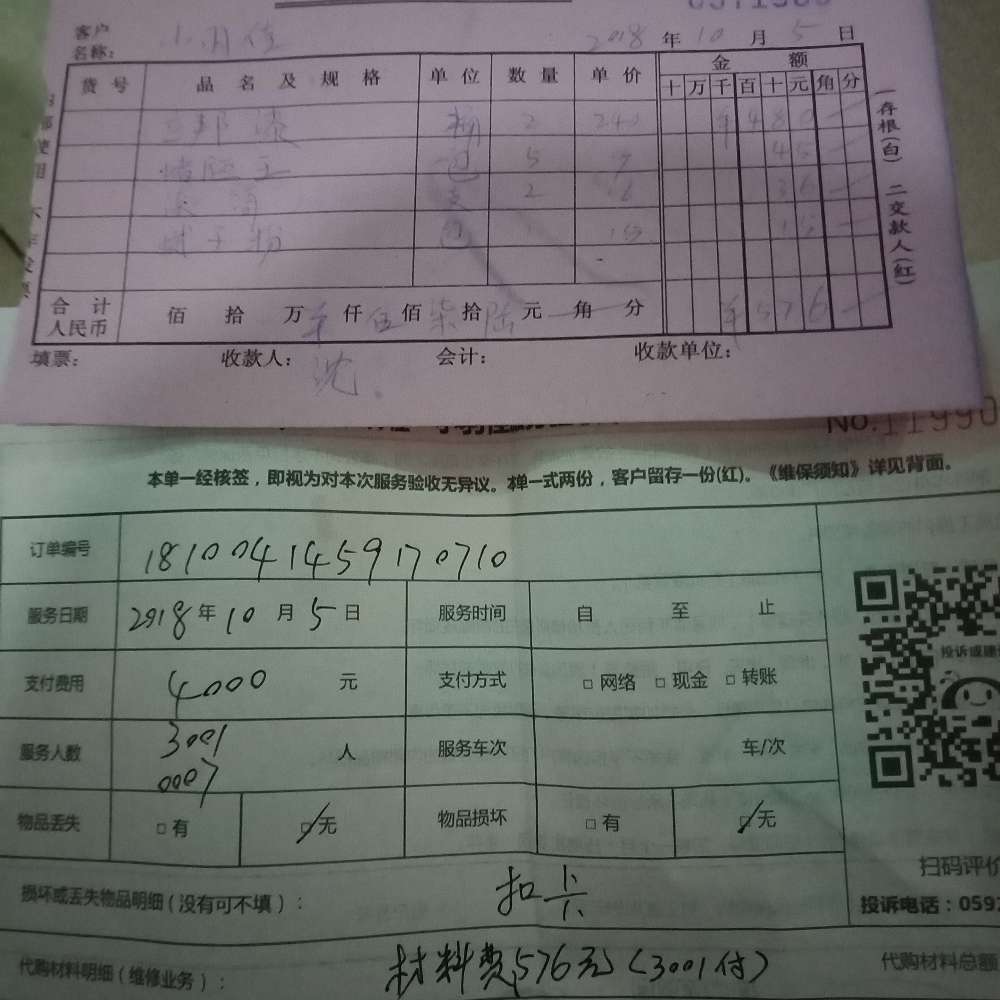 客户名称： 2018 年 10 月 5 日
货号 品名及规格 单位 数量 单价 金额
十 万 千 百 十 元 角 分
立邦漆 桶 2 240 ¥480
堵漏王 包 5 9 45
滚筒 支 2 18 36
腻子粉 包 1 15 15
合计人民币 佰 拾 万 仟 伍 佰 柒 拾 陆 元 角 分 ¥576
填票： 收款人： 沈 会计： 收款单位：
一存根(白) 二交款人(红)
No.11990
本单一经核签，即视为对本次服务验收无异议。本单一式两份，客户留存一份(红)。《维保须知》详见背面。
订单编号 181004145917 0710
服务日期 2018 年 10 月 5 日 服务时间 自 至 止
支付费用 4000 元 支付方式 □ 网络 □ 现金 □ 转账
服务人数 3001 0007 人 服务车次 车/次
物品丢失 □ 有 ☑ 无 物品损坏 □ 有 ☑ 无
损坏或丢失物品明细（没有可不填）： 扣卡
代购材料明细（维修业务）： 材料费576元（3001付） 代购材料总额
扫码评价
投诉电话：0592